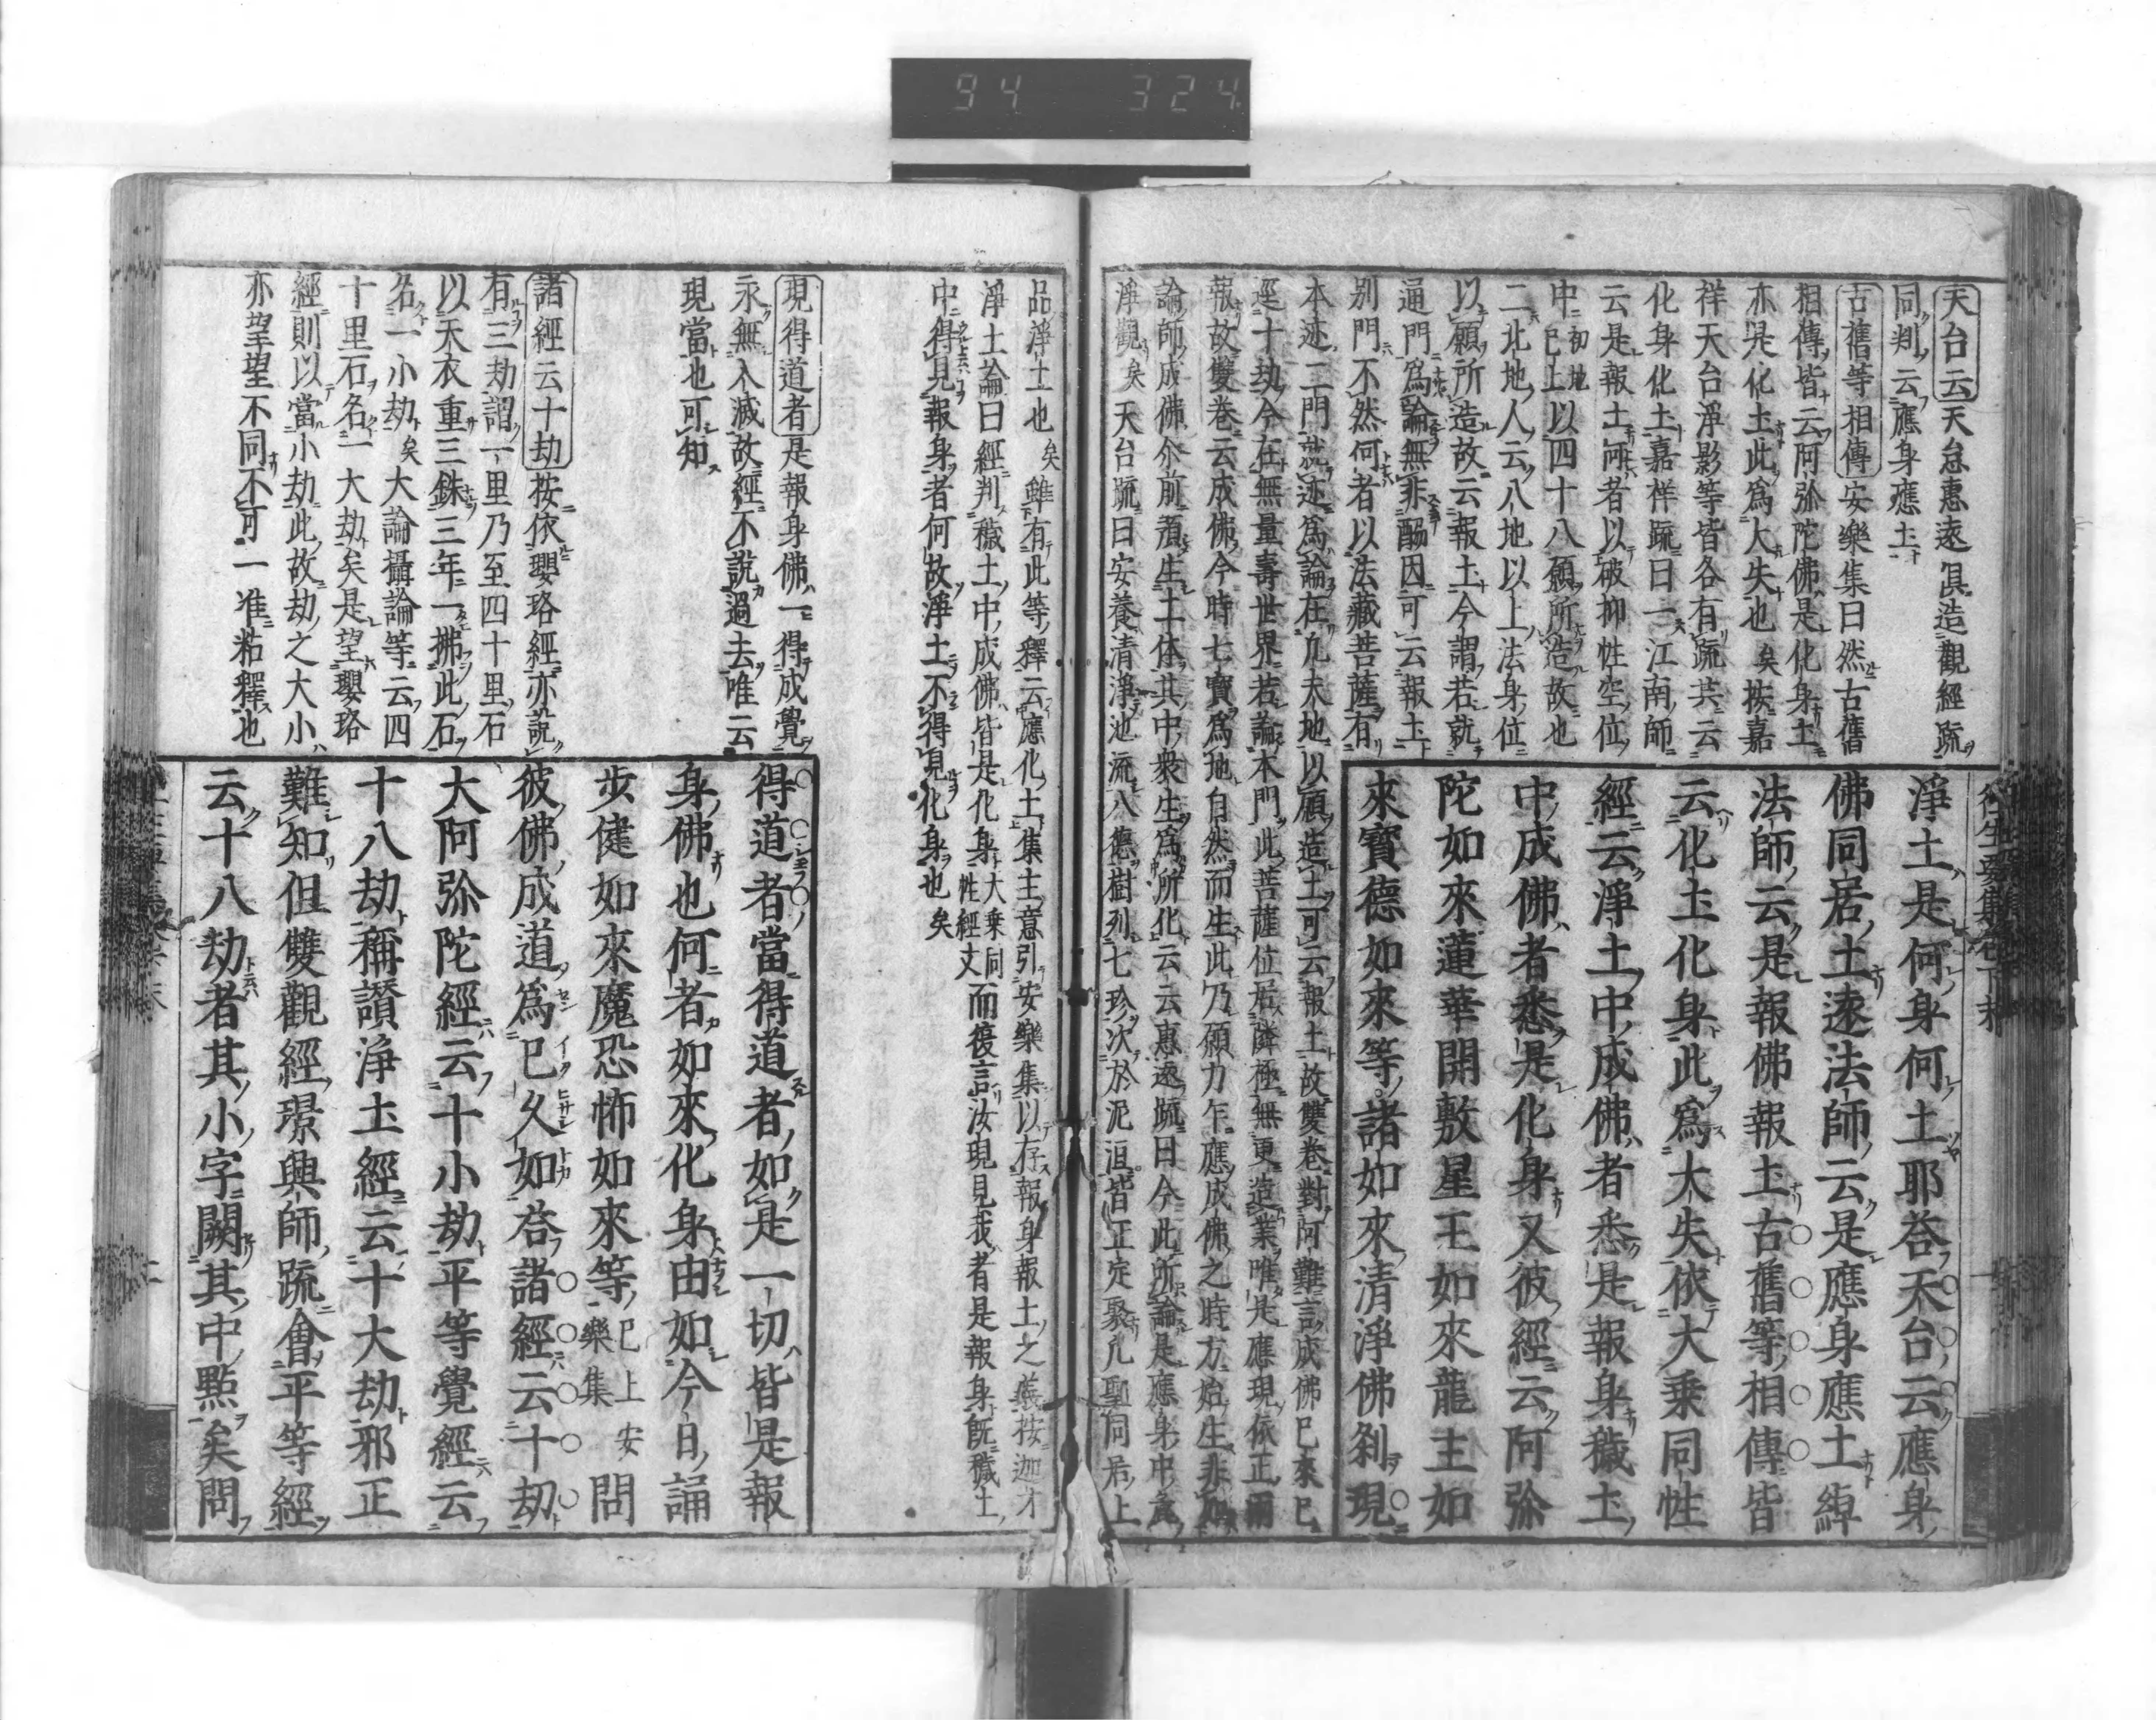 94 324
天台云天台惠遠具造觀經疏
同判云應身應土
古舊等相傳安樂集曰然古舊
相傳皆云阿弥陀佛是化身土
亦是化土此爲大失也矣挨嘉
祥天台淨影等皆各有疏共云
化身化土嘉祥疏曰一江南師
云是報土何者以破抑性空位
中初地已上以四十八願所造故也
二北地人云八地以上法身位
以願所造故云報土今謂若就
通門爲論無非酬因可云報土
別門不然何者以法藏菩薩有
本迹二門就迹爲論在凡夫地以願造土可云報土故雙卷對阿難言成佛已來已
逕十劫今在無量壽世界若論本門此菩薩位居隣極無更造業唯是應現依正爾
報故雙卷云成佛今時七寶爲地自然而生此乃願力乍應成佛之時方始生非
論師成佛介前著生土体其中衆生爲所化云云惠遠疏曰今此所論是應身中
淨觀矣天台疏曰安養清淨池流八德樹列七珍次於泥洹皆正定聚凡聖同居上
淨土是何身何土耶荅天台云應身
佛同居土遠法師云是應身應土綽
法師云是報佛報土古舊等相傳皆
云化土化身此爲大失依大乗同性
經云淨土中成佛者悉是報身穢土
中成佛者悉是化身又彼經云阿弥
陀如來蓮華開敷星王如來龍主如
來寳德如來等諸如來清淨佛刹現
徃生要集卷下末
品淨土也矣雖有此等釋云應化土集主意引安樂集以存報身報土之義按迦才
淨土論曰經判穢土中成佛皆是化身大乗同性經文而復言汝現見我者是報身既穢土
中得見報身者何故淨土不得見化身也矣
現得道者是報身佛一得成覺
永無入滅故經不說過去唯云
現當也可知
諸經云十劫按依瓔珞經亦說
有三劫謂一里乃至四十里石
以天衣重三銖三年一拂此石
名一小劫矣大論攝論等云四
十里石名一大劫矣是望瓔珞
經則以當小劫此故劫之大小
亦望望不同不可一准粘釋也
得道者當得道者如是一切皆是報
身佛也何者如來化身由如今日誦
步健如來魔恐怖如來等已上安樂集問
彼佛成道爲已久如荅諸經云十劫
大阿弥陀經云十小劫平等覺經云
十八劫稱讃淨土經云十大劫邪正
難知但雙觀經璟興師疏會平等經
云十八劫者其小字闕其中點矣問